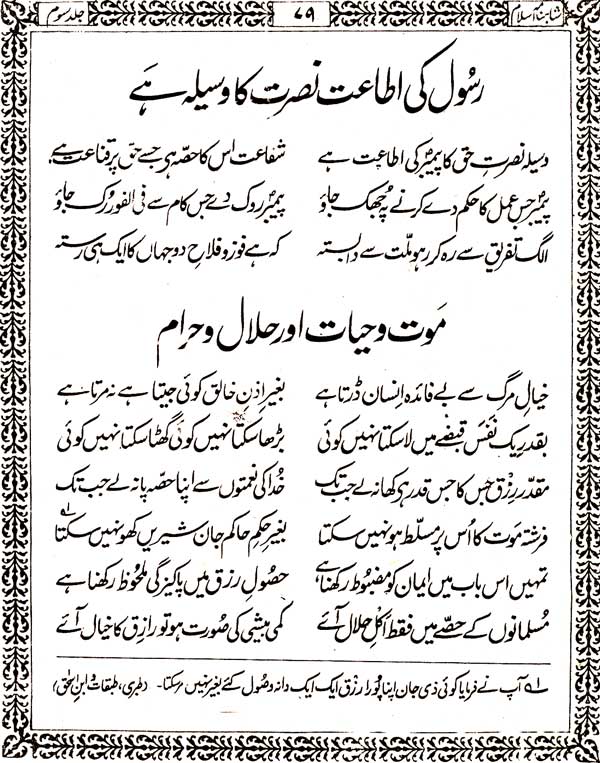 شاہنامہ اسلام ۷۹ جلد سوم
رسُول کی اطاعت نصرت کا وسیلہ ہے
وسیلہ نصرتِ حق کا پیمبرؐ کی اطاعت ہے شفاعت اس کا حصہ ہی جسے حق پر قناعت ہے
پیمبرؐ جس عمل کا حکم دے کرنے پہ جھک جاؤ پیمبرؐ روک دے جس کام سے فی الفور رُک جاؤ
الگ تفریق سے رہ کر رہو ملّت سے وابستہ کہ ہے فوز و فلاحِ دو جہاں کا ایک ہی رستہ
مَوت و حیات اور حلال و حرام
خیالِ مرگ سے بے فائدہ اِنسان ڈرتا ہے بغیر اِذنِ خالق کوئی جیتا ہے نہ مرتا ہے
بقدرِ یک نفَس قبضے میں لا سکتا نہیں کوئی بڑھا سکتا نہیں کوئی گھٹا سکتا نہیں کوئی
مقدّر رِزق جس کا جس قدر ہی کھا نہ لے جب تک خُدا کی نعمتوں سے اپنا حصّہ پا نہ لے جب تک
فرشتہ مَوت کا اُس پر مسلّط ہو نہیں سکتا بغیر حکمِ حاکم جان شیریں کھو نہیں سکتا ؎۱
تمہیں اس باب میں اِیمان کو مضبُوط رکھنا ہے حصولِ رزق میں پاکیزگی ملحُوظ رکھنا ہے
مُسلمانوں کے حصّے میں فقط اکلِ حلال آئے کمی بیشی کی صُورت ہو تو رازِق کا خیال آئے
؎۱ آپ نے فرمایا کوئی ذی جان اپنا پُورا رِزق ایک ایک دانہ وصُول کئے بغیر نہیں مرسکتا۔ (طبری، طبقات و ابن اسحٰق)